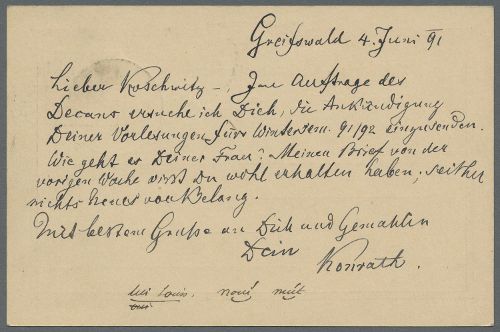 Greifswald 4. Juni 91
Lieber Koschwitz –, Im Auftrage des
Decans ersuche ich Dich, die Ankündigung
Deiner Vorlesungen fürs Wintersem. 91/92 einzusenden.
Wie geht es Deiner Frau? Meinen Brief von der
vorigen Woche wirst Du wohl erhalten haben, seither
nichts Neues von Belang.
Mit bestem Gruße an Dich und Gemahlin
Dein
Konrath.